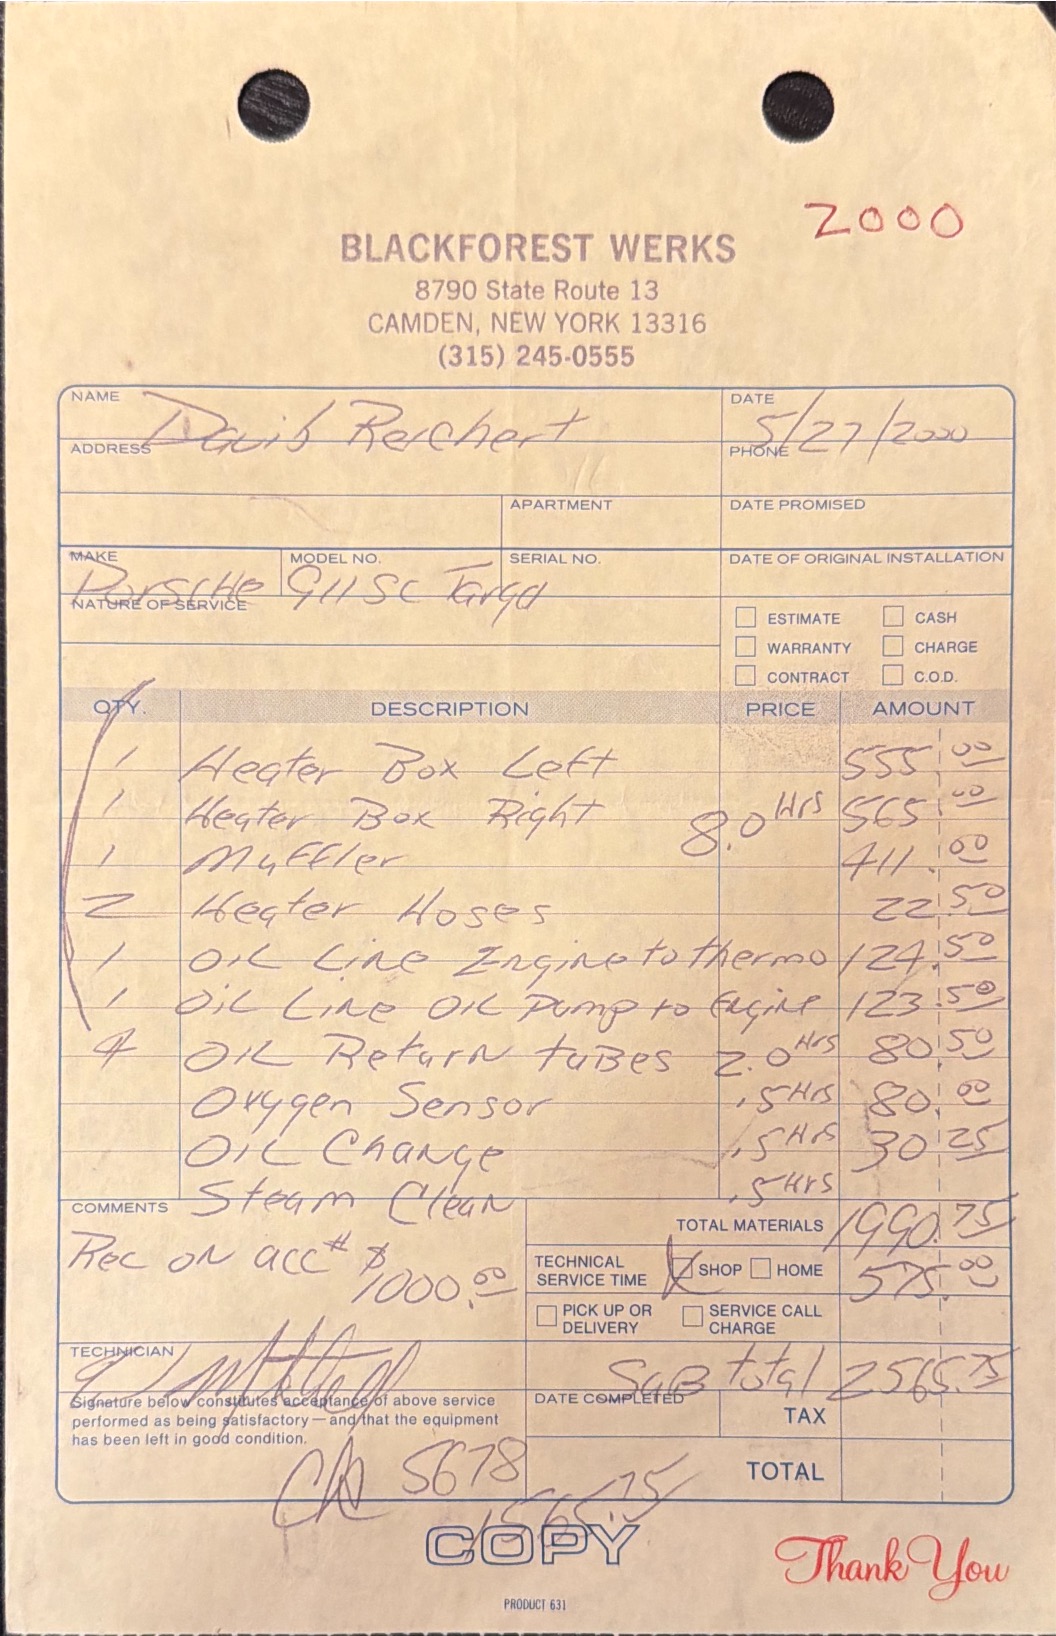 2000
BLACKFOREST WERKS
8790 State Route 13
CAMDEN, NEW YORK 13316
(315) 245-0555
NAME David Reichert DATE 5/27/2000
ADDRESS PHONE
APARTMENT DATE PROMISED
MAKE Porsche MODEL NO. 911 SC Targa SERIAL NO. DATE OF ORIGINAL INSTALLATION
NATURE OF SERVICE
ESTIMATE CASH
WARRANTY CHARGE
CONTRACT C.O.D.
QTY. DESCRIPTION PRICE AMOUNT
1 Heater Box Left 555.00
1 Heater Box Right 8.0 Hrs 565.00
1 Muffler 411.00
2 Heater Hoses 22.50
1 OIL Line Engine to thermo 124.50
1 OIL Line OIL Pump to Engine 123.50
4 OIL Return tuBes 2.0 Hrs 80.50
Oxygen Sensor .5 Hrs 80.00
OIL Change .5 Hrs 30.25
Steam Clean .5 Hrs
COMMENTS
TOTAL MATERIALS 1990.75
Rec on acc# $1000.00
TECHNICAL SERVICE TIME SHOP HOME 575.00
PICK UP OR DELIVERY SERVICE CALL CHARGE
TECHNICIAN
SuB total 2565.75
Signature below constitutes acceptance of above service
performed as being satisfactory — and that the equipment
has been left in good condition.
DATE COMPLETED TAX
Ck 5678
TOTAL
1565.75
COPY
Thank You
PRODUCT 631